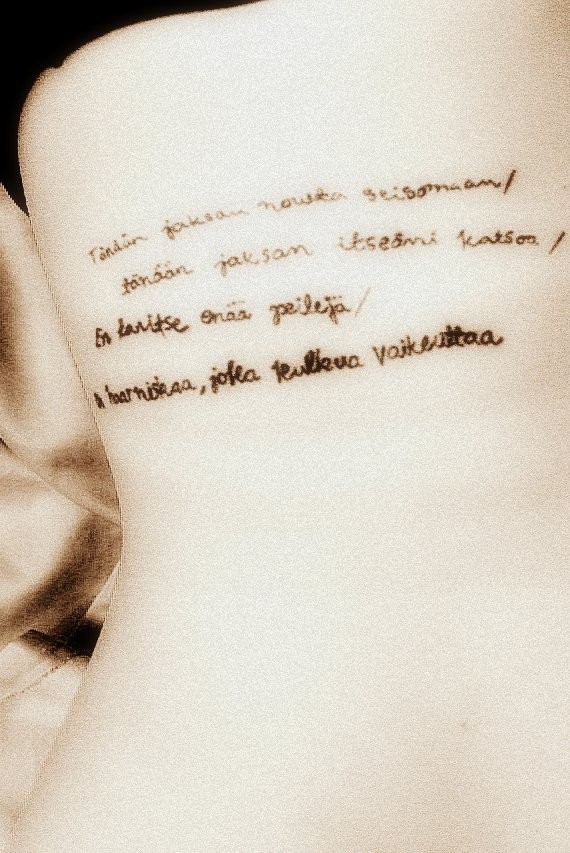 Tänään jaksan nousta seisomaan/
tänään jaksan itseäni katsoa /
En tarvitse enää peilejä/
haarniskaa, joka kulkua vaikeuttaa